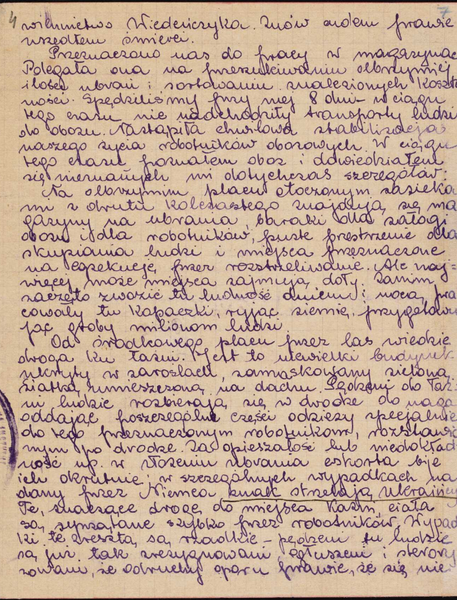 4
7
wilnictwo Wiedeńczyka. Znów cudem prawie
uszedłem śmierci.
Przeznaczono nas do pracy w magazynach.
Polegała ona na przeszukiwaniu olbrzymiej
ilości ubrań i sortowaniu znalezionych koszto
ności. Spędziliśmy przy niej 8 dni w ciągu
tego czasu nie nadchodziły transporty ludzi
do obozu. Nastąpiła chwilowa stabilizacja
naszego życia robotników obozowych. W ciągu
tego czasu poznałem obóz i dowiedziałem
się nieznanych mi dotychczas szczegółów:
Na olbrzymim placu otoczonym zasieka
mi z drutu kolczastego znajdują się ma
gazyny na ubrania, baraki dla załogi
obozu i dla robotników, puste przestrzenie dla
skupiania ludzi i miejsca przeznaczone
na egzekucję przez rozstrzeliwanie. Ale naj-
więcej może miejsca zajmują doły. Zanim
zaczęto zwozić tu ludność dniem i nocą, pra
cowały tu kopaczki, ryjąc ziemię, przygotowu
jąc groby milionom ludzi.
Od środkowego placu przez las wiedzie
droga ku łaźni. Jest to niewielki budynek
ukryty w zaroślach, zamaskowany zieloną
siatką umieszczoną na dachu. Pędzeni do łaź
ni ludzie rozbierają się w drodze do naga
oddając poszczególne części odzieży specjalnie
do tego przeznaczonym robotnikom, rozstawio
nym po drodze. Za opieszałość lub niedokład
ność np. w złożeniu ubrania eskorta bije
ich okrutnie, w szczególnych wypadkach na
dany przez Niemca znak strzelają Ukraińcy
Te, znaczące drogę do miejsca kaźni, ciała
są sprzątane szybko przez robotników. Wypad
ki te zresztą są rzadkie - pędzeni tu ludzie
są już tak zrezygnowani ogłuszeni i sterory
zowani, że odruchy oporu prawie, że się nie